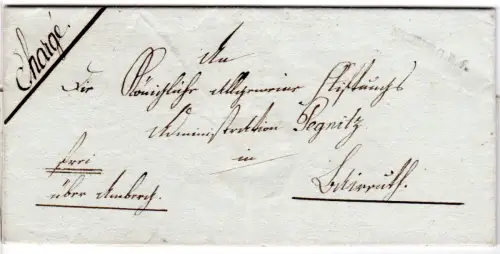 Chargé.
An
Die Königliche Allgemeine Stiftungs
Administration Pegnitz
in
frei
über Amberg.
Baireuth.